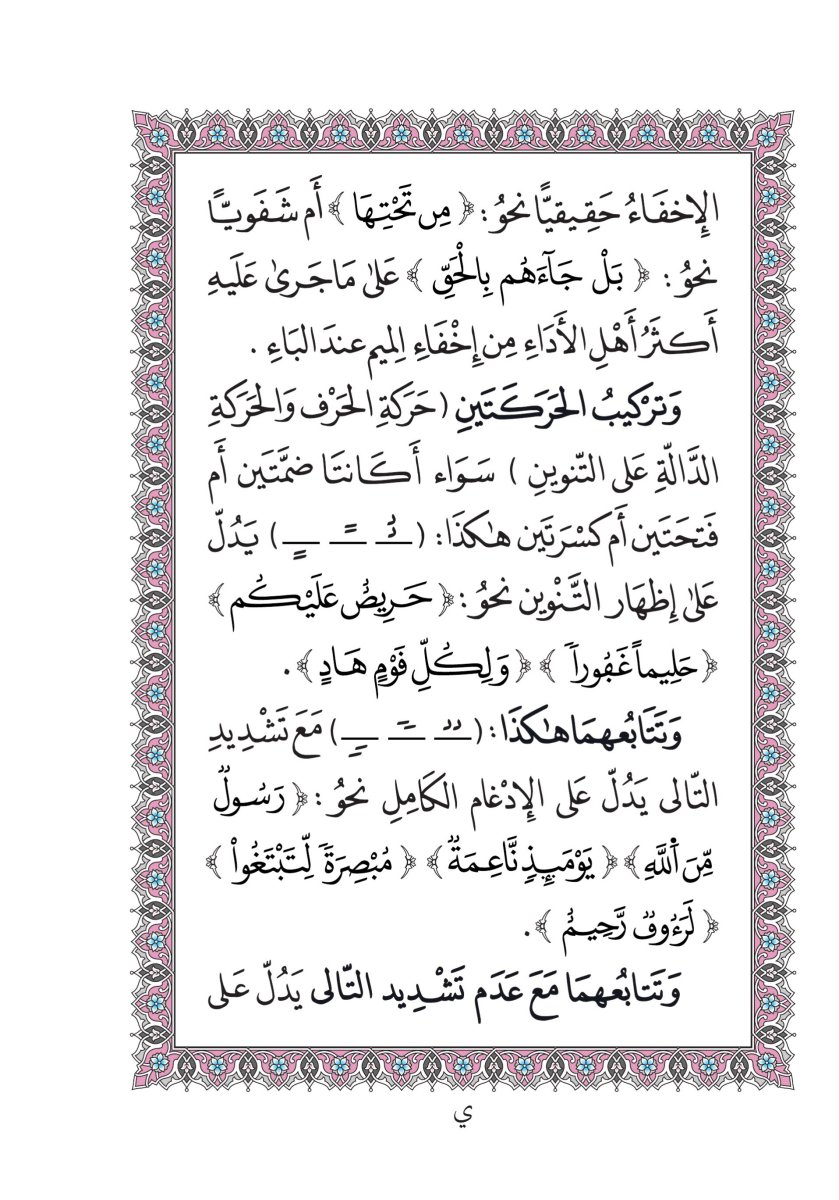 الإِخفَاءُ حَقِيقيًّا نحوُ: ﴿ مِن تَحْتِهَا ﴾ أَم شَفَويًّا
نحوُ: ﴿ بَلْ جَآءَهُم بِالْحَقِّ ﴾ عَلىٰ مَاجَرىٰ عَلَيهِ
أَكثَرُ أَهْلِ الأَدَاءِ مِن إِخْفَاءِ المِيم عندَ البَاءِ .
وَتَركِيبُ الحَرَكَتَينِ (حَرَكَةِ الحَرْف وَالحَرَكَةِ
الدَّالّةِ عَلى التّنوينِ ) سَوَاء أَكَانتَا ضمَّتَين أَم
فَتحَتَين أَم كسْرَتَين هٰكذَا: ( ــٌـ ــًـ ــٍـ ) يَدُلّ
عَلىٰ إِظهَار التَّنْوين نحوُ: ﴿ حَرِيصٌ عَلَيْكُم ﴾
﴿ حَلِيماً غَفُوراً ﴾ ﴿ وَلِكُلِّ قَوْمٍ هَادٍ ﴾ .
وَتَتَابُعهمَا هٰكذَا: ( ــࣱـ ــࣰـ ــࣲـ ) مَعَ تَشْدِيدِ
التّالى يَدُلّ عَلى الإِدْغام الكَامِلِ نحوُ: ﴿ رَسُولࣱ
مِّنَ ٱللَّهِ ﴾ ﴿ يَوْمَئِذࣲ نَّاعِمَةࣱ ﴾ ﴿ مُبْصِرَةࣰ لِّتَبْتَغُواْ ﴾
﴿ لَرَءُوفࣱ رَّحِيمٌ ﴾ .
وَتَتابُعهمَا مَعَ عَدَم تَشْدِيد التّالى يَدُلّ عَلى
ي